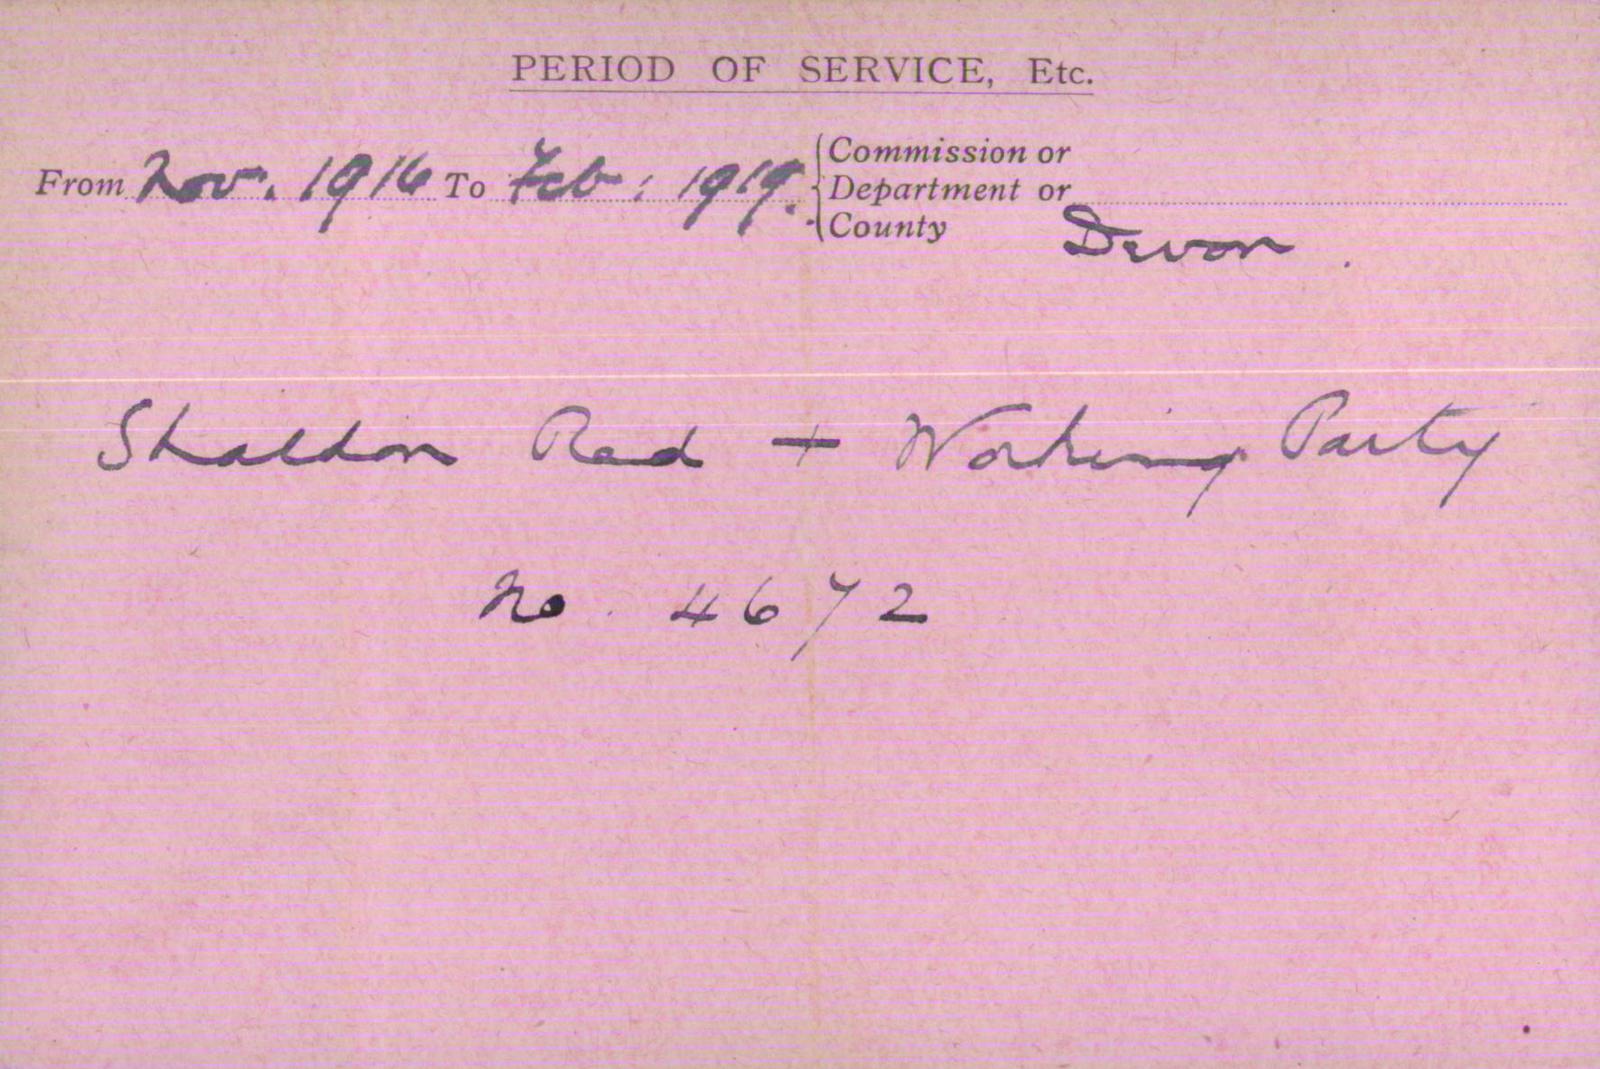 PERIOD OF SERVICE, Etc.
From Nov. 1916 To Feb: 1919. Commission or
Department or
County Devon.
Shaldon Red + Working Party
No. 4672